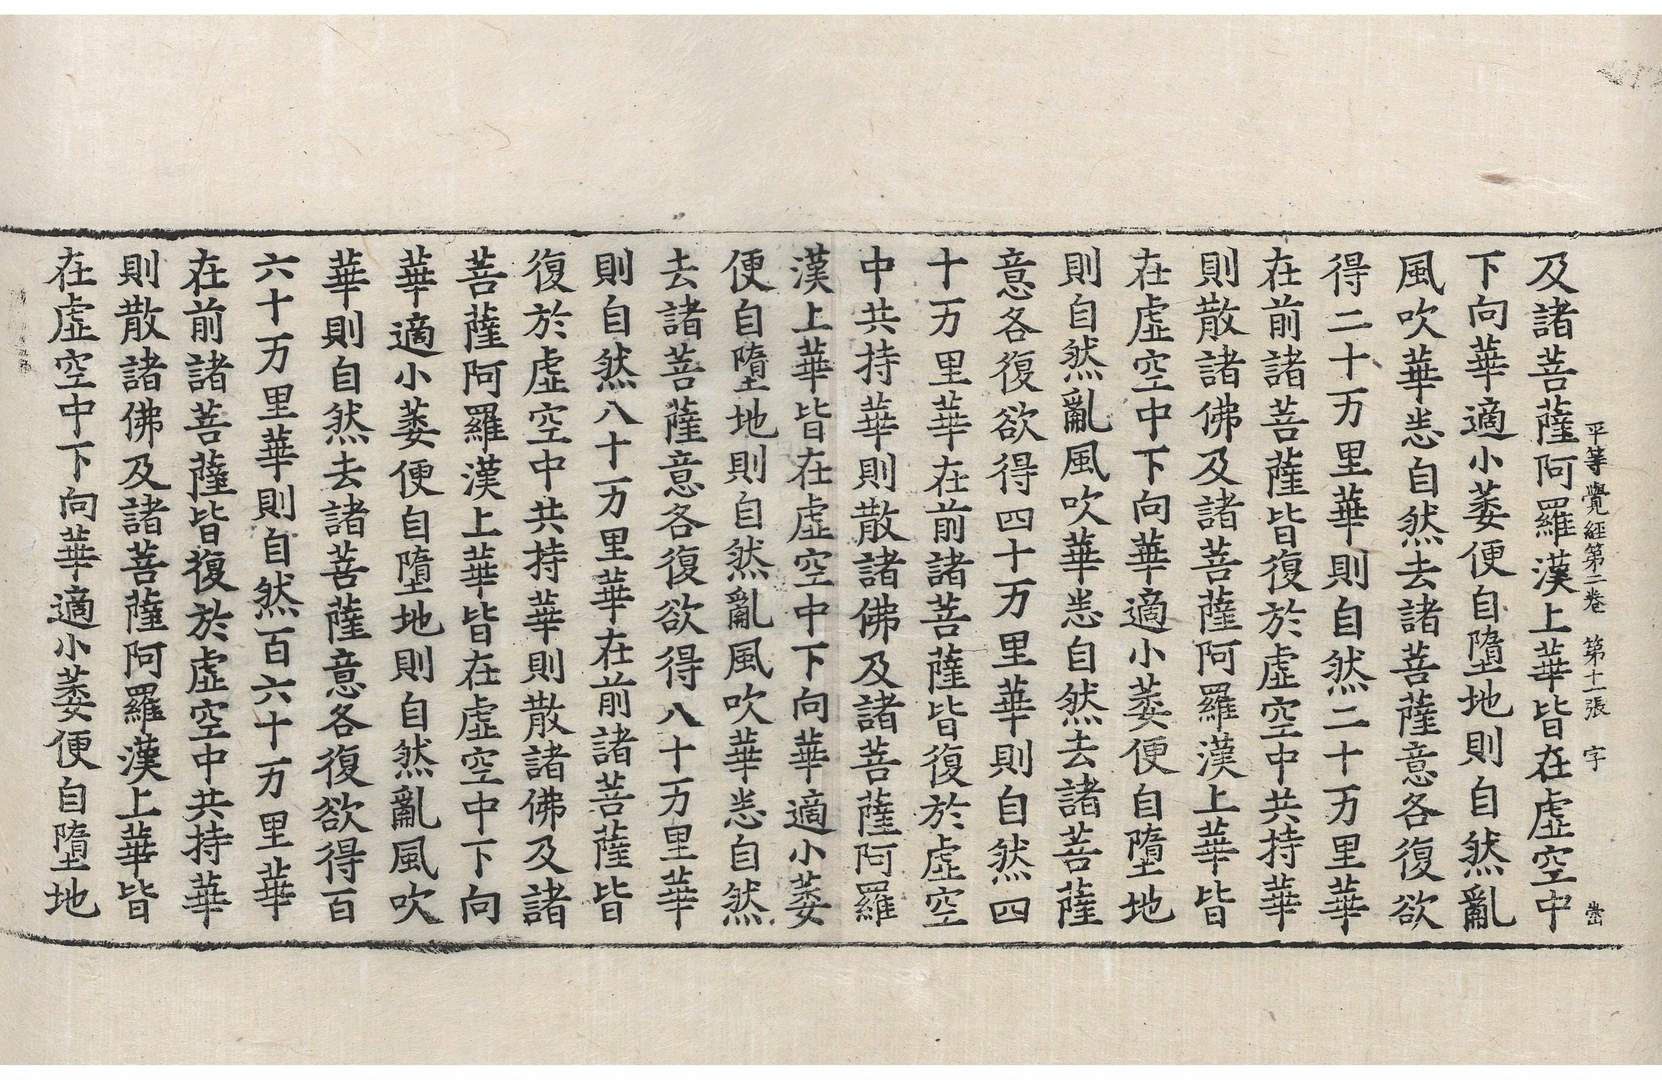 平等覺經第二卷 第十一張 字
及諸菩薩阿羅漢上華皆在虛空中
下向華適小萎便自墮地則自然亂
風吹華悉自然去諸菩薩意各復欲
得二十万里華則自然二十万里華
在前諸菩薩皆復於虛空中共持華
則散諸佛及諸菩薩阿羅漢上華皆
在虛空中下向華適小萎便自墮地
則自然亂風吹華悉自然去諸菩薩
意各復欲得四十万里華則自然四
十万里華在前諸菩薩皆復於虛空
中共持華則散諸佛及諸菩薩阿羅
漢上華皆在虛空中下向華適小萎
便自墮地則自然亂風吹華悉自然
去諸菩薩意各復欲得八十万里華
則自然八十万里華在前諸菩薩皆
復於虛空中共持華則散諸佛及諸
菩薩阿羅漢上華皆在虛空中下向
華適小萎便自墮地則自然亂風吹
華則自然去諸菩薩意各復欲得百
六十万里華則自然百六十万里華
在前諸菩薩皆復於虛空中共持華
則散諸佛及諸菩薩阿羅漢上華皆
在虛空中下向華適小萎便自墮地